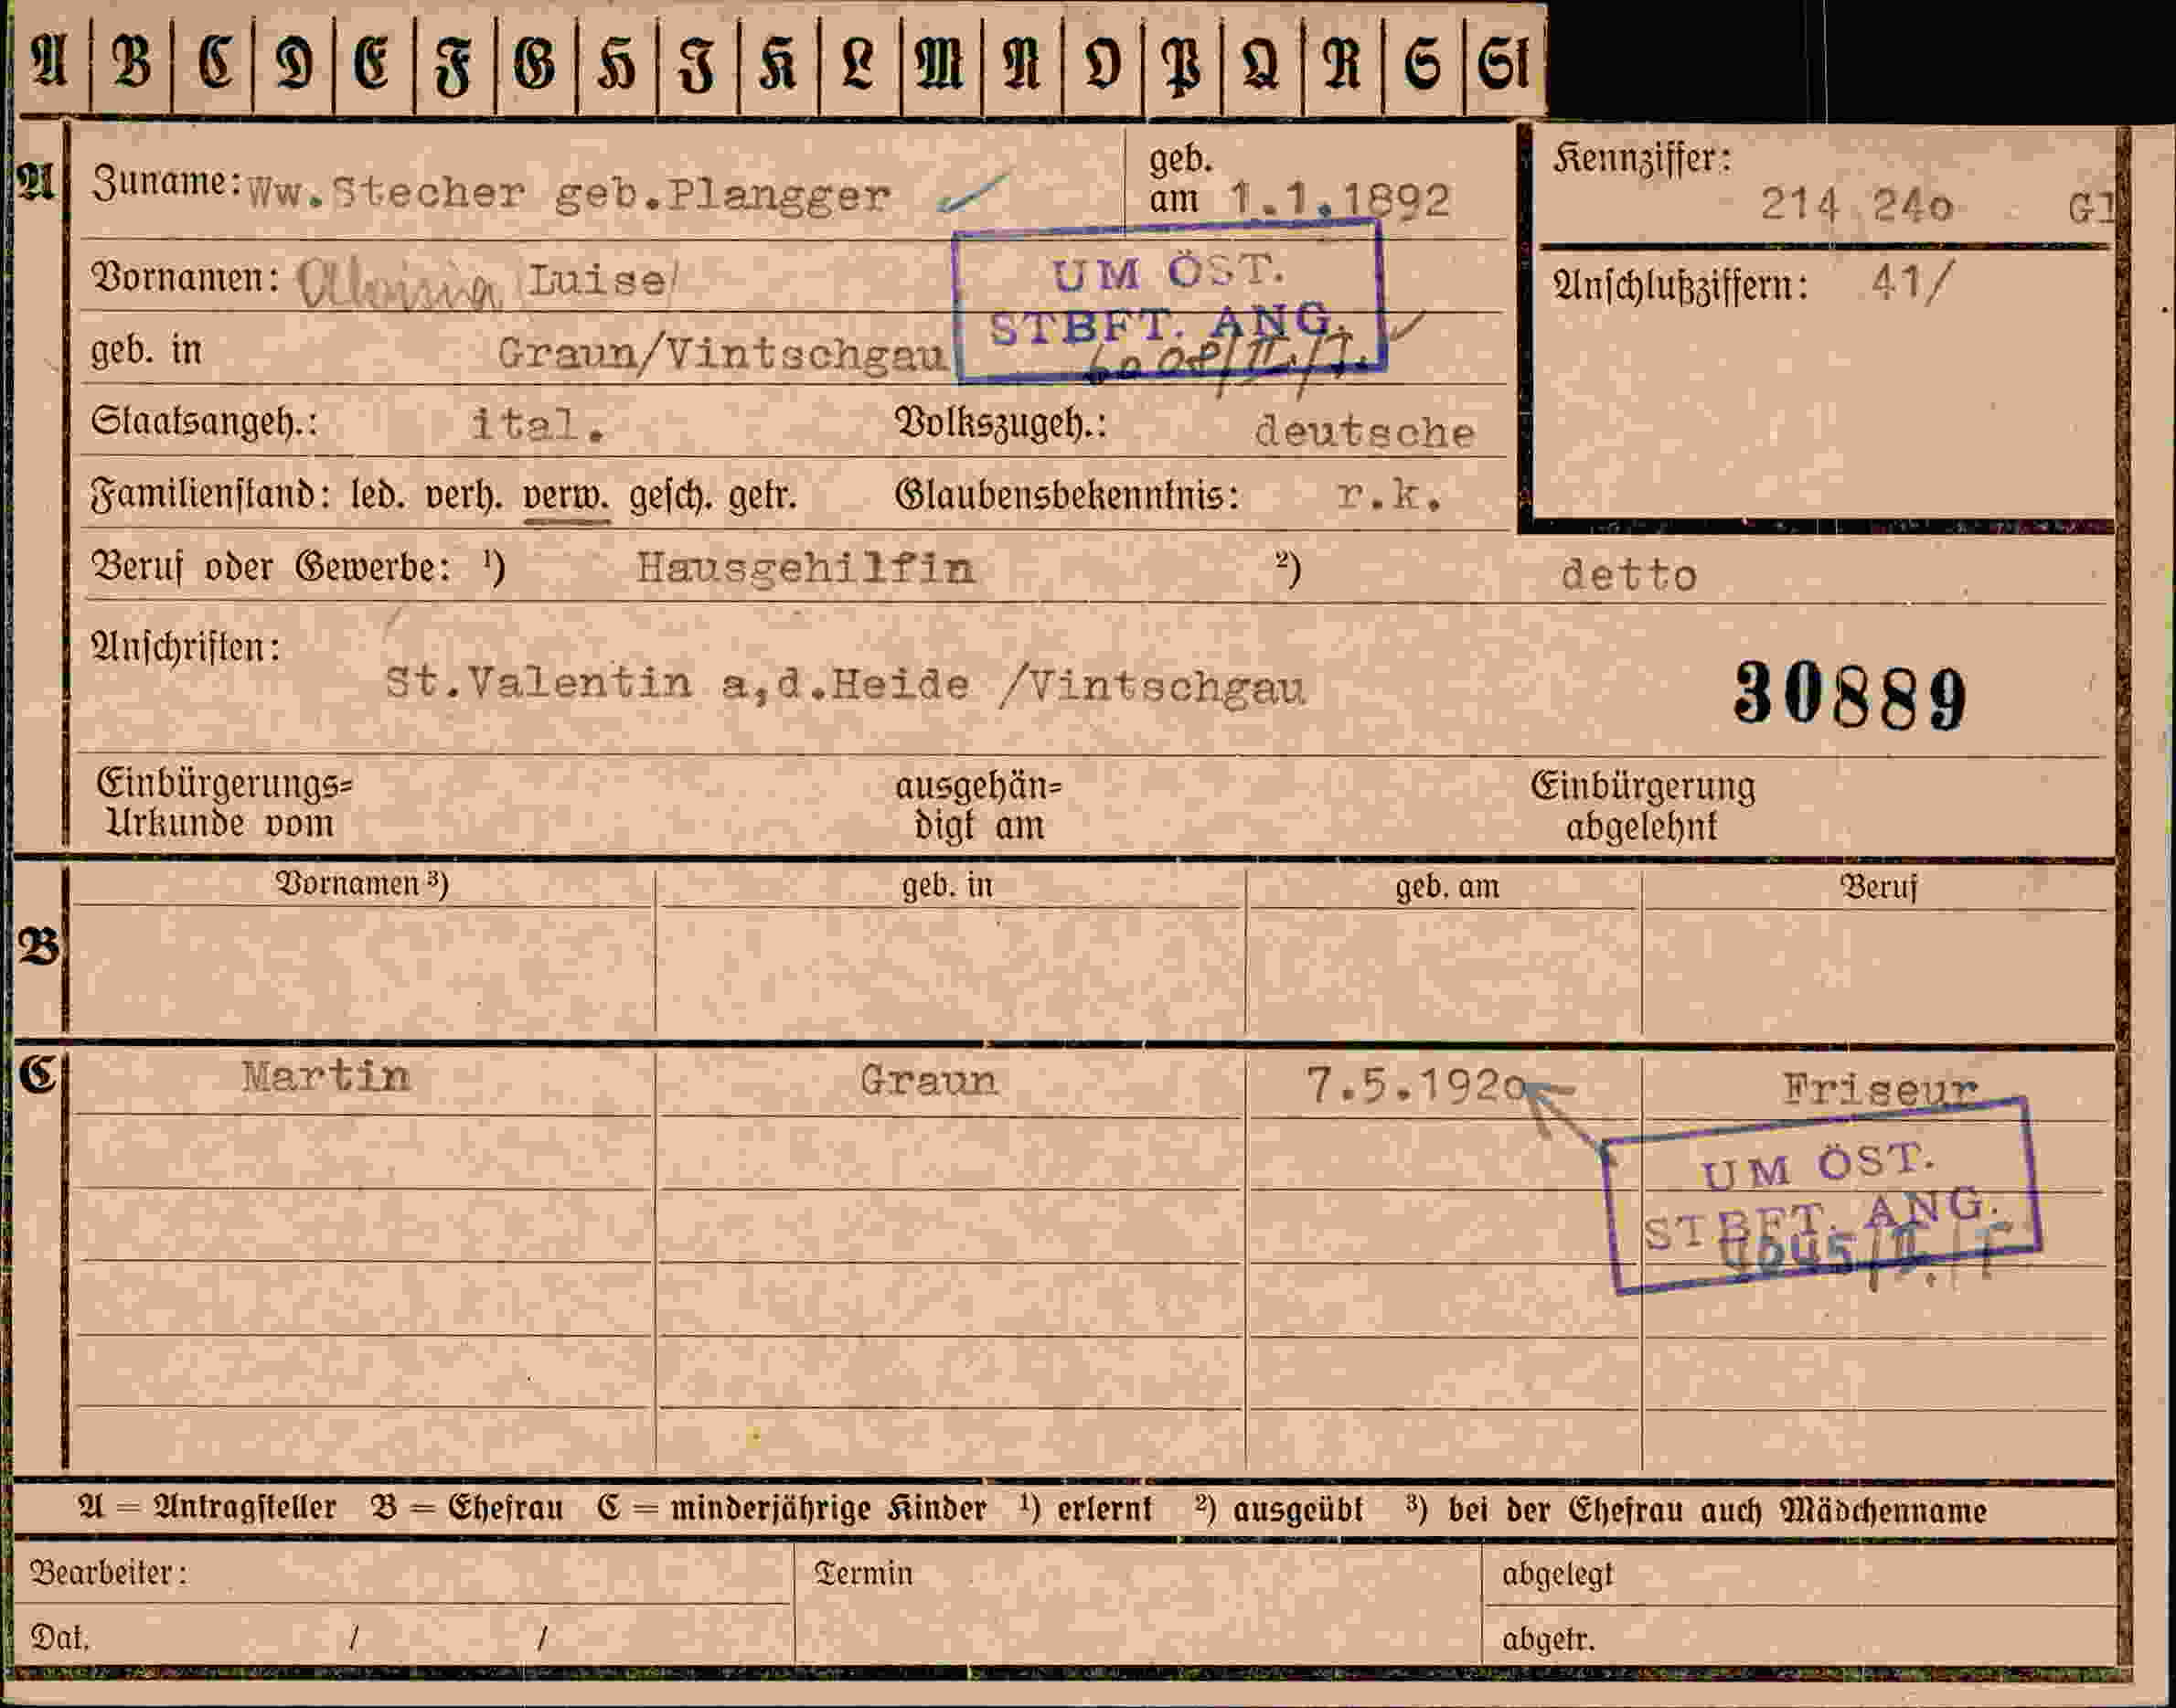 A B C D E F G H I K L M N O P Q R S St
A Zuname: Ww.Stecher geb.Plangger geb. am 1.1.1892
Kennziffer: 214 24o Gl
Vornamen: Aloisia Luise/
UM ÖST.
STBFT. ANG.
Anschlußziffern: 41/
geb. in Graun/Vintschgau
Staatsangeh.: ital. Volkszugeh.: deutsche
Familienstand: led. verh. verw. gesch. getr. Glaubensbekenntnis: r.k.
Beruf oder Gewerbe: ¹) Hausgehilfin ²) detto
Anschriften:
St.Valentin a,d.Heide /Vintschgau 30889
Einbürgerungs=
Urkunde vom
ausgehän=
digt am
Einbürgerung
abgelehnt
B Vornamen ³) geb. in geb. am Beruf
C Martin Graun 7.5.192o Friseur
UM ÖST.
STBFT. ANG.
A = Antragsteller B = Ehefrau C = minderjährige Kinder ¹) erlernt ²) ausgeübt ³) bei der Ehefrau auch Mädchenname
Bearbeiter: Termin abgelegt
Dat. / / abgetr.